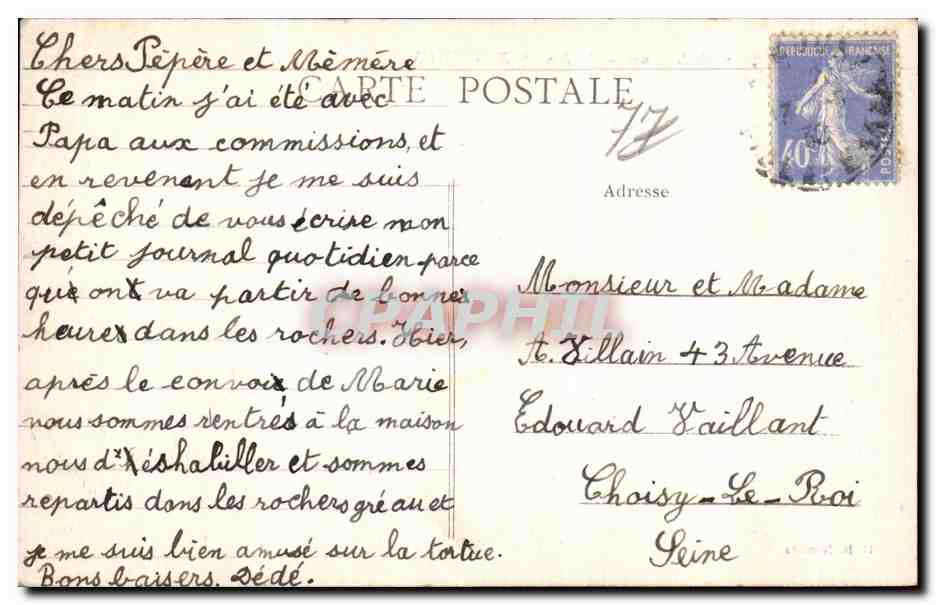 Chers Pépère et Mèmère
Ce matin j'ai été avec
Papa aux commissions, et
en revenent je me suis
dépêché de vous écrire mon
petit journal quotidien parce
qu'on va partir de bonne
heure dans les rochers. Hier,
après le convoi de Marie
nous sommes rentrés à la maison
nous déshabiller et sommes
repartis dans les rochers gréau et
je me suis bien amusé sur la tortue.
Bons baisers. Dédé.
CARTE POSTALE
77
REPUBLIQUE FRANÇAISE
40c
POSTES
Adresse
Monsieur et Madame
A. Villain 43 Avenue
Edouard Vaillant
Choisy-Le-Roi
Seine
CPAPHIL